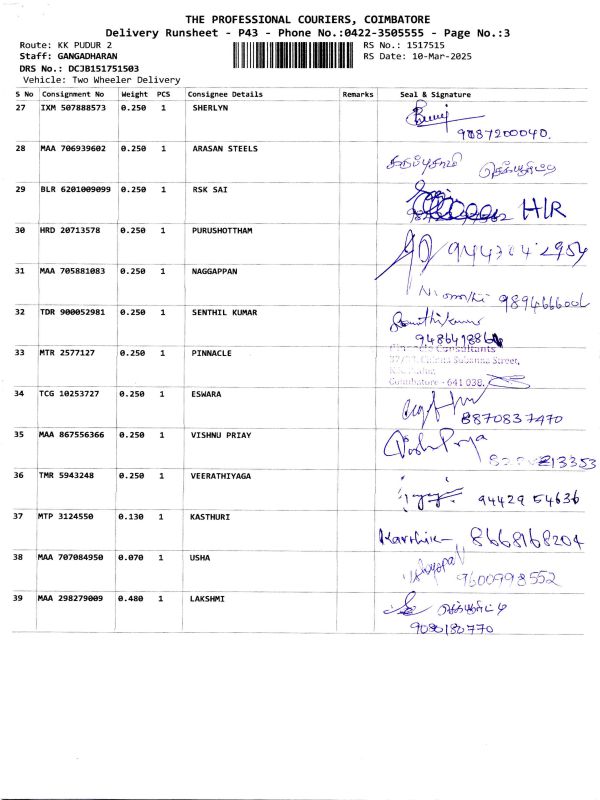 THE PROFESSIONAL COURIERS, COIMBATORE
Delivery Runsheet - P43 - Phone No.:0422-3505555 - Page No.:3
Route: KK PUDUR 2 RS No.: 1517515
Staff: GANGADHARAN RS Date: 10-Mar-2025
DRS No.: DCJB151751503
Vehicle: Two Wheeler Delivery
S No Consignment No Weight PCS Consignee Details Remarks Seal & Signature
27 IXM 507888573 0.250 1 SHERLYN
9087200040.
28 MAA 706939602 0.250 1 ARASAN STEELS
கருப்புசாமி செக்யூரிட்டி
29 BLR 6201009099 0.250 1 RSK SAI
H/R
30 HRD 20713578 0.250 1 PURUSHOTTHAM
31 MAA 705881083 0.250 1 NAGGAPPAN
9894666006
32 TDR 900052981 0.250 1 SENTHIL KUMAR
33 MTR 2577127 0.250 1 PINNACLE
Consultants
Street,
Coimbatore - 641 038.
34 TCG 10253727 0.250 1 ESWARA
8870837470
35 MAA 867556366 0.250 1 VISHNU PRIAY
36 TMR 5943248 0.250 1 VEERATHIYAGA
94429 54636
37 MTP 3124550 0.130 1 KASTHURI
Karthik 8668168204
38 MAA 707084950 0.070 1 USHA
9600998552
39 MAA 298279009 0.480 1 LAKSHMI
செக்யூரிட்டி
9080180770